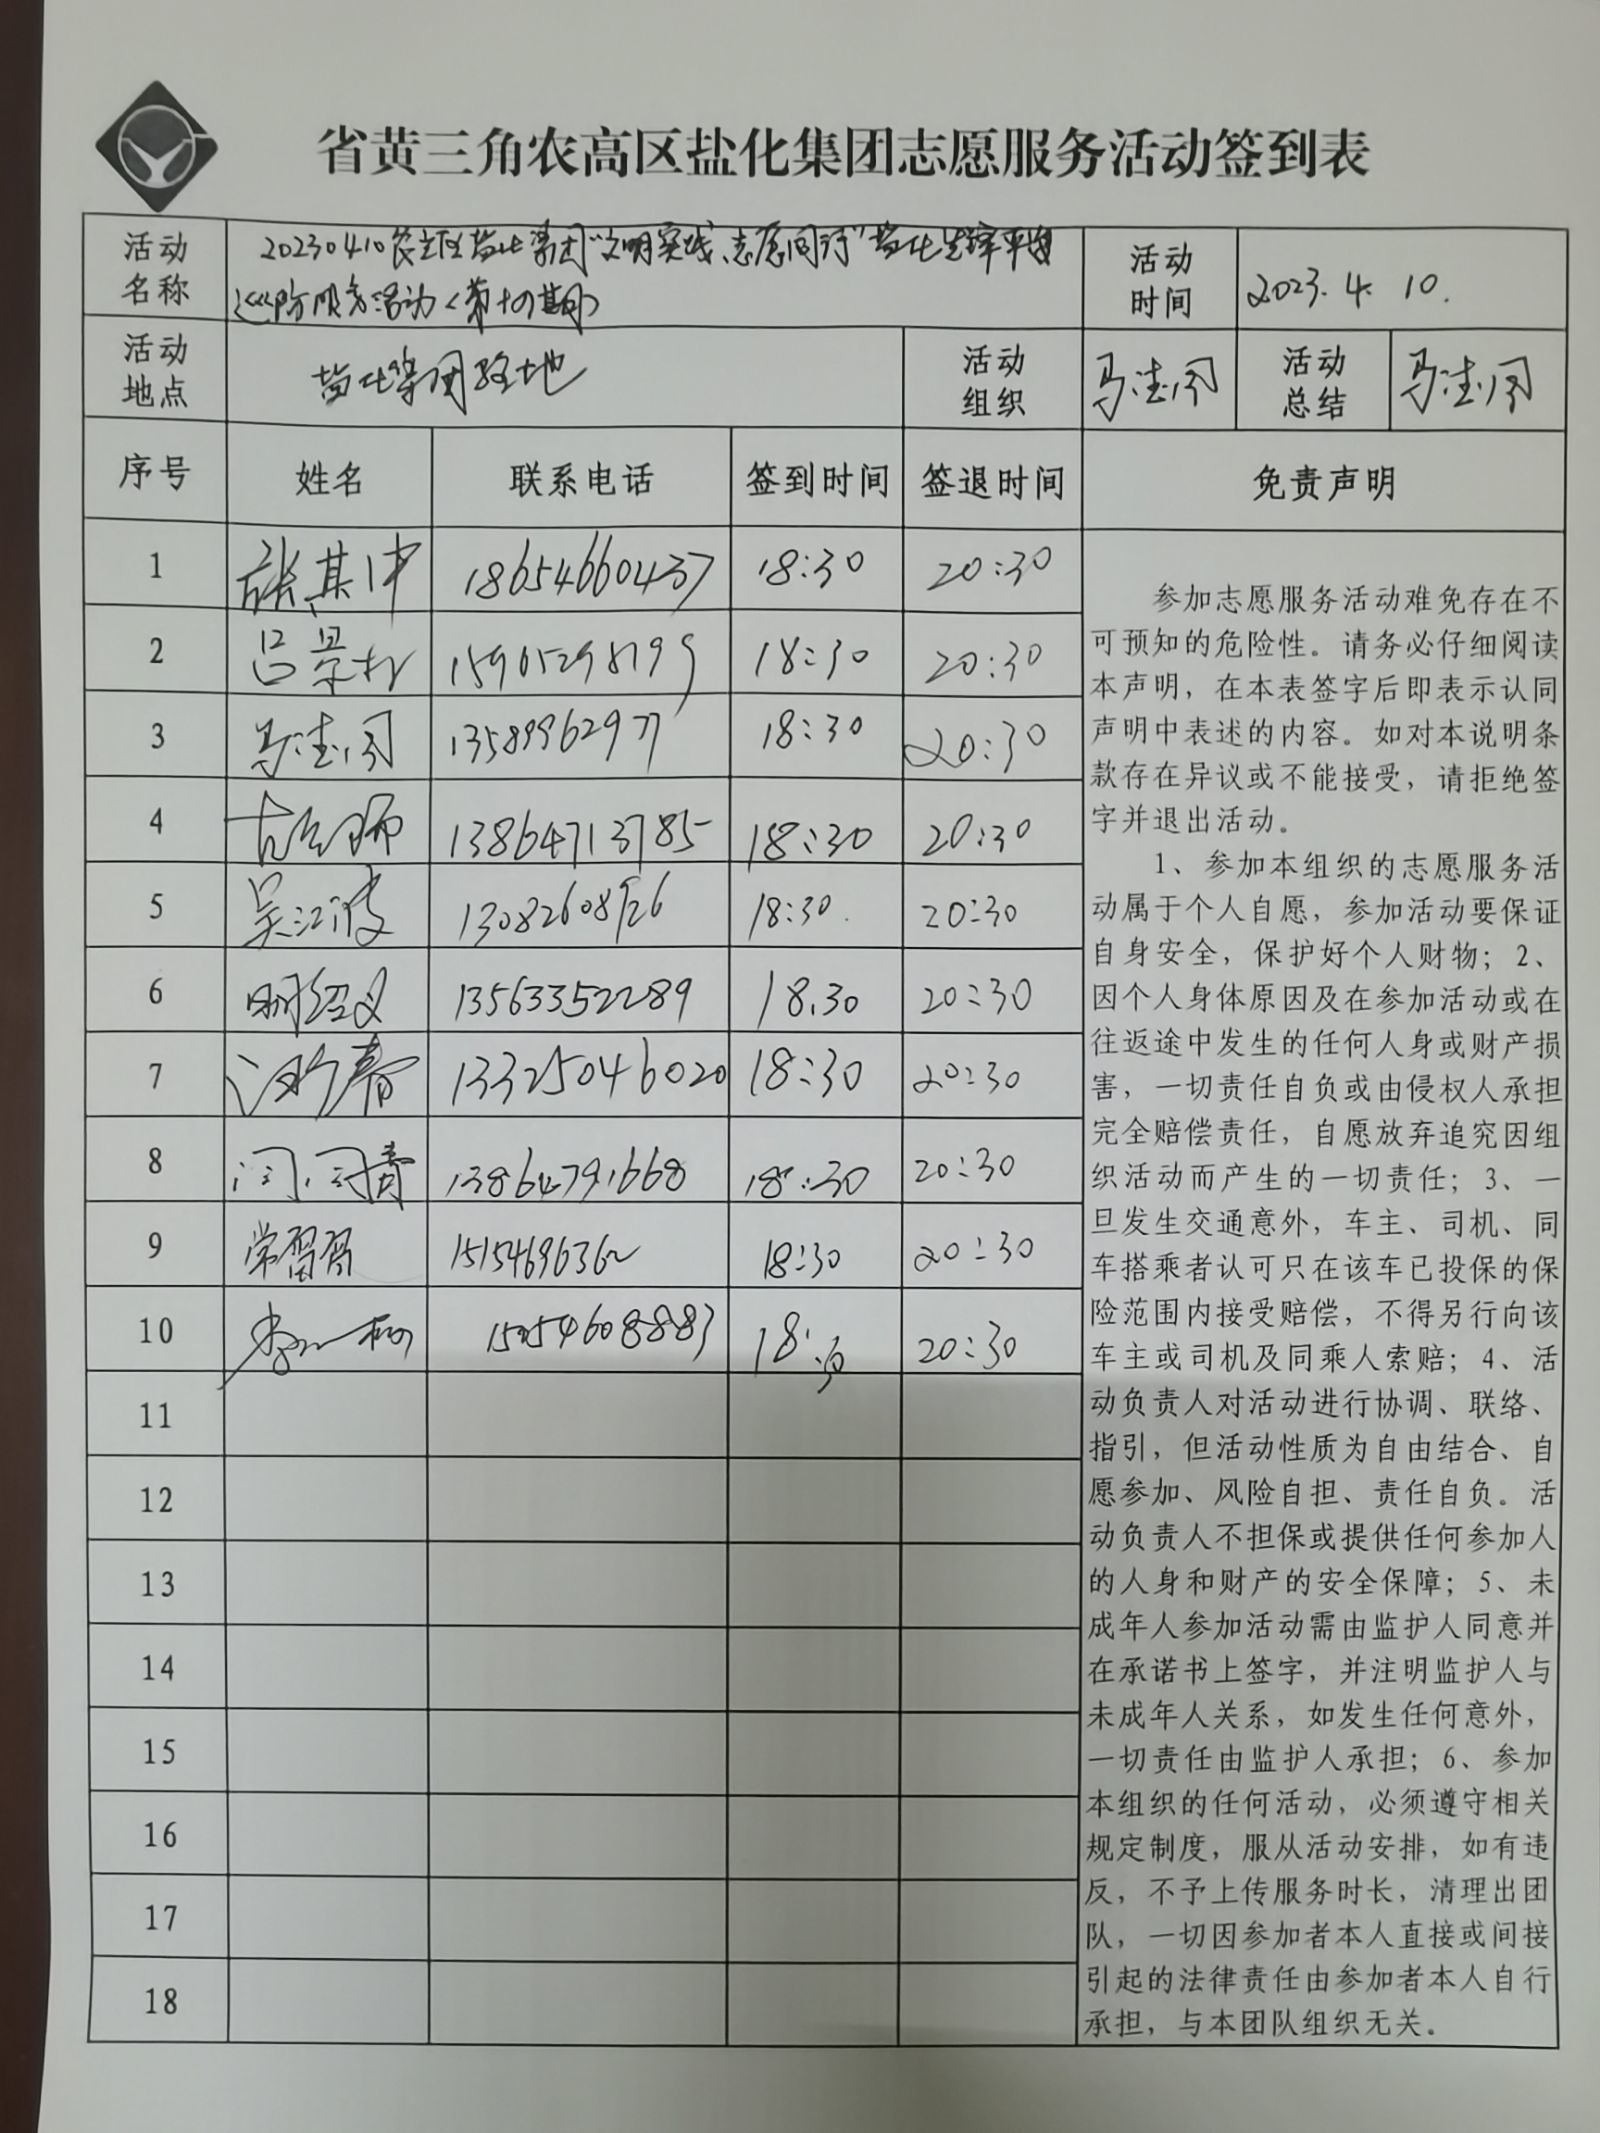 省黄三角农高区盐化集团志愿服务活动签到表
活动名称
20230410农高区盐化集团“文明实践、志愿同行”盐化
巡防服务活动(第十四期)
活动时间
2023.4.10.
活动地点
盐化集团驻地
活动组织
马洼同
活动总结
马洼同
序号 姓名 联系电话 签到时间 签退时间 免责声明
1 张其中 18654660437 18:30 20:30
2 吕景 15965298199 18:30 20:30
3 马洼同 13589962977 18:30 20:30
4 13864713785 18:30 20:30
5 吴江波 13082608926 18:30. 20:30
6 明经义 13563352289 18.30 20:30
7 13325046020 18:30 20:30
8 闫同青 13864791668 18:30 20:30
9 常习习 15154696362 18:30 20:30
10 18:30 20:30
11
12
13
14
15
16
17
18
参加志愿服务活动难免存在不
可预知的危险性。请务必仔细阅读
本声明，在本表签字后即表示认同
声明中表述的内容。如对本说明条
款存在异议或不能接受，请拒绝签
字并退出活动。
1、参加本组织的志愿服务活
动属于个人自愿，参加活动要保证
自身安全，保护好个人财物；2、
因个人身体原因及在参加活动或在
往返途中发生的任何人身或财产损
害，一切责任自负或由侵权人承担
完全赔偿责任，自愿放弃追究因组
织活动而产生的一切责任；3、一
旦发生交通意外，车主、司机、同
车搭乘者认可只在该车已投保的保
险范围内接受赔偿，不得另行向该
车主或司机及同乘人索赔；4、活
动负责人对活动进行协调、联络、
指引，但活动性质为自由结合、自
愿参加、风险自担、责任自负。活
动负责人不担保或提供任何参加人
的人身和财产的安全保障；5、未
成年人参加活动需由监护人同意并
在承诺书上签字，并注明监护人与
未成年人关系，如发生任何意外，
一切责任由监护人承担；6、参加
本组织的任何活动，必须遵守相关
规定制度，服从活动安排，如有违
反，不予上传服务时长，清理出团
队，一切因参加者本人直接或间接
引起的法律责任由参加者本人自行
承担，与本团队组织无关。